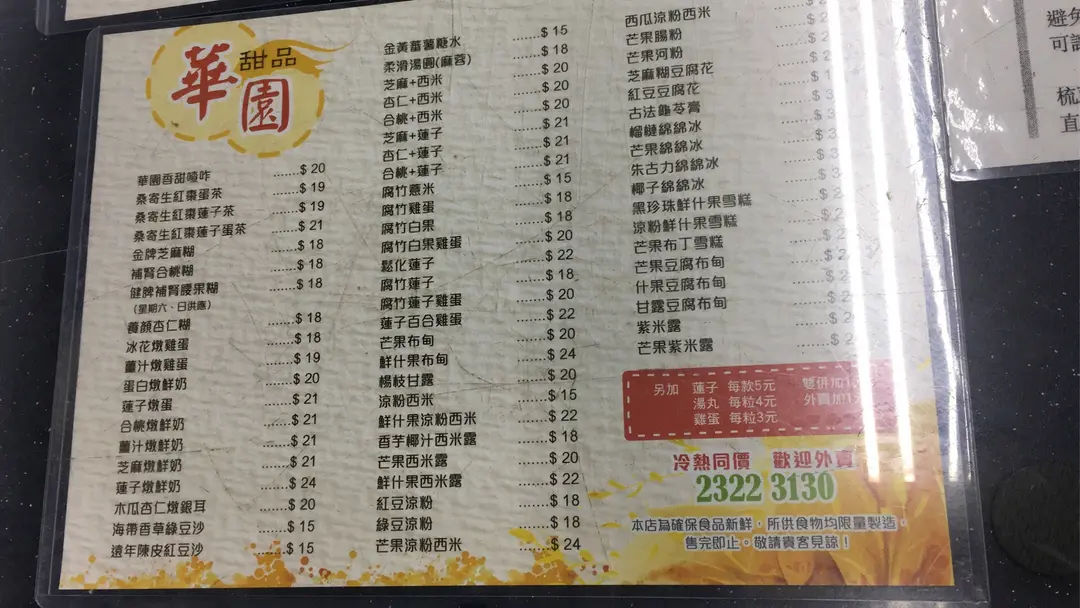 華園 甜品
華園香甜喳咋 ......$ 20
桑寄生紅棗蛋茶 ......$ 19
桑寄生紅棗蓮子茶 ......$ 19
桑寄生紅棗蓮子蛋茶 ......$ 21
金牌芝麻糊 ......$ 18
補腎合桃糊 ......$ 18
健脾補腎腰果糊 ......$ 18
(星期六、日供應)
養顏杏仁糊 ......$ 18
冰花燉雞蛋 ......$ 18
薑汁燉雞蛋 ......$ 19
蛋白燉鮮奶 ......$ 20
蓮子燉蛋 ......$ 21
合桃燉鮮奶 ......$ 21
薑汁燉鮮奶 ......$ 21
芝麻燉鮮奶 ......$ 21
蓮子燉鮮奶 ......$ 24
木瓜杏仁燉銀耳 ......$ 20
海帶香草綠豆沙 ......$ 15
遠年陳皮紅豆沙 ......$ 15
金黃蕃薯糖水 ......$ 15
柔滑湯圓(麻蓉) ......$ 18
芝麻+西米 ......$ 20
杏仁+西米 ......$ 20
合桃+西米 ......$ 20
芝麻+蓮子 ......$ 21
杏仁+蓮子 ......$ 21
合桃+蓮子 ......$ 21
腐竹薏米 ......$ 15
腐竹雞蛋 ......$ 18
腐竹白果 ......$ 18
腐竹白果雞蛋 ......$ 20
鬆化蓮子 ......$ 22
腐竹蓮子 ......$ 18
腐竹蓮子雞蛋 ......$ 20
蓮子百合雞蛋 ......$ 22
芒果布甸 ......$ 20
鮮什果布甸 ......$ 24
楊枝甘露 ......$ 20
涼粉西米 ......$ 15
鮮什果涼粉西米 ......$ 22
香芋椰汁西米露 ......$ 18
芒果西米露 ......$ 20
鮮什果西米露 ......$ 22
紅豆涼粉 ......$ 18
綠豆涼粉 ......$ 18
芒果涼粉西米 ......$ 24
西瓜涼粉西米
芒果腸粉
芒果河粉
芝麻糊豆腐花
紅豆豆腐花
古法龜苓膏
榴槤綿綿冰
芒果綿綿冰
朱古力綿綿冰
椰子綿綿冰
黑珍珠鮮什果雪糕
涼粉鮮什果雪糕
芒果布丁雪糕
芒果豆腐布甸
什果豆腐布甸
甘露豆腐布甸
紫米露
芒果紫米露
另加 蓮子 每款5元 雙併加1
湯丸 每粒4元 外賣加1
雞蛋 每粒3元
冷熱同價 歡迎外賣
2322 3130
本店為確保食品新鮮，所供食物均限量製造，
售完即止。敬請貴客見諒！
避免
可
梳
直